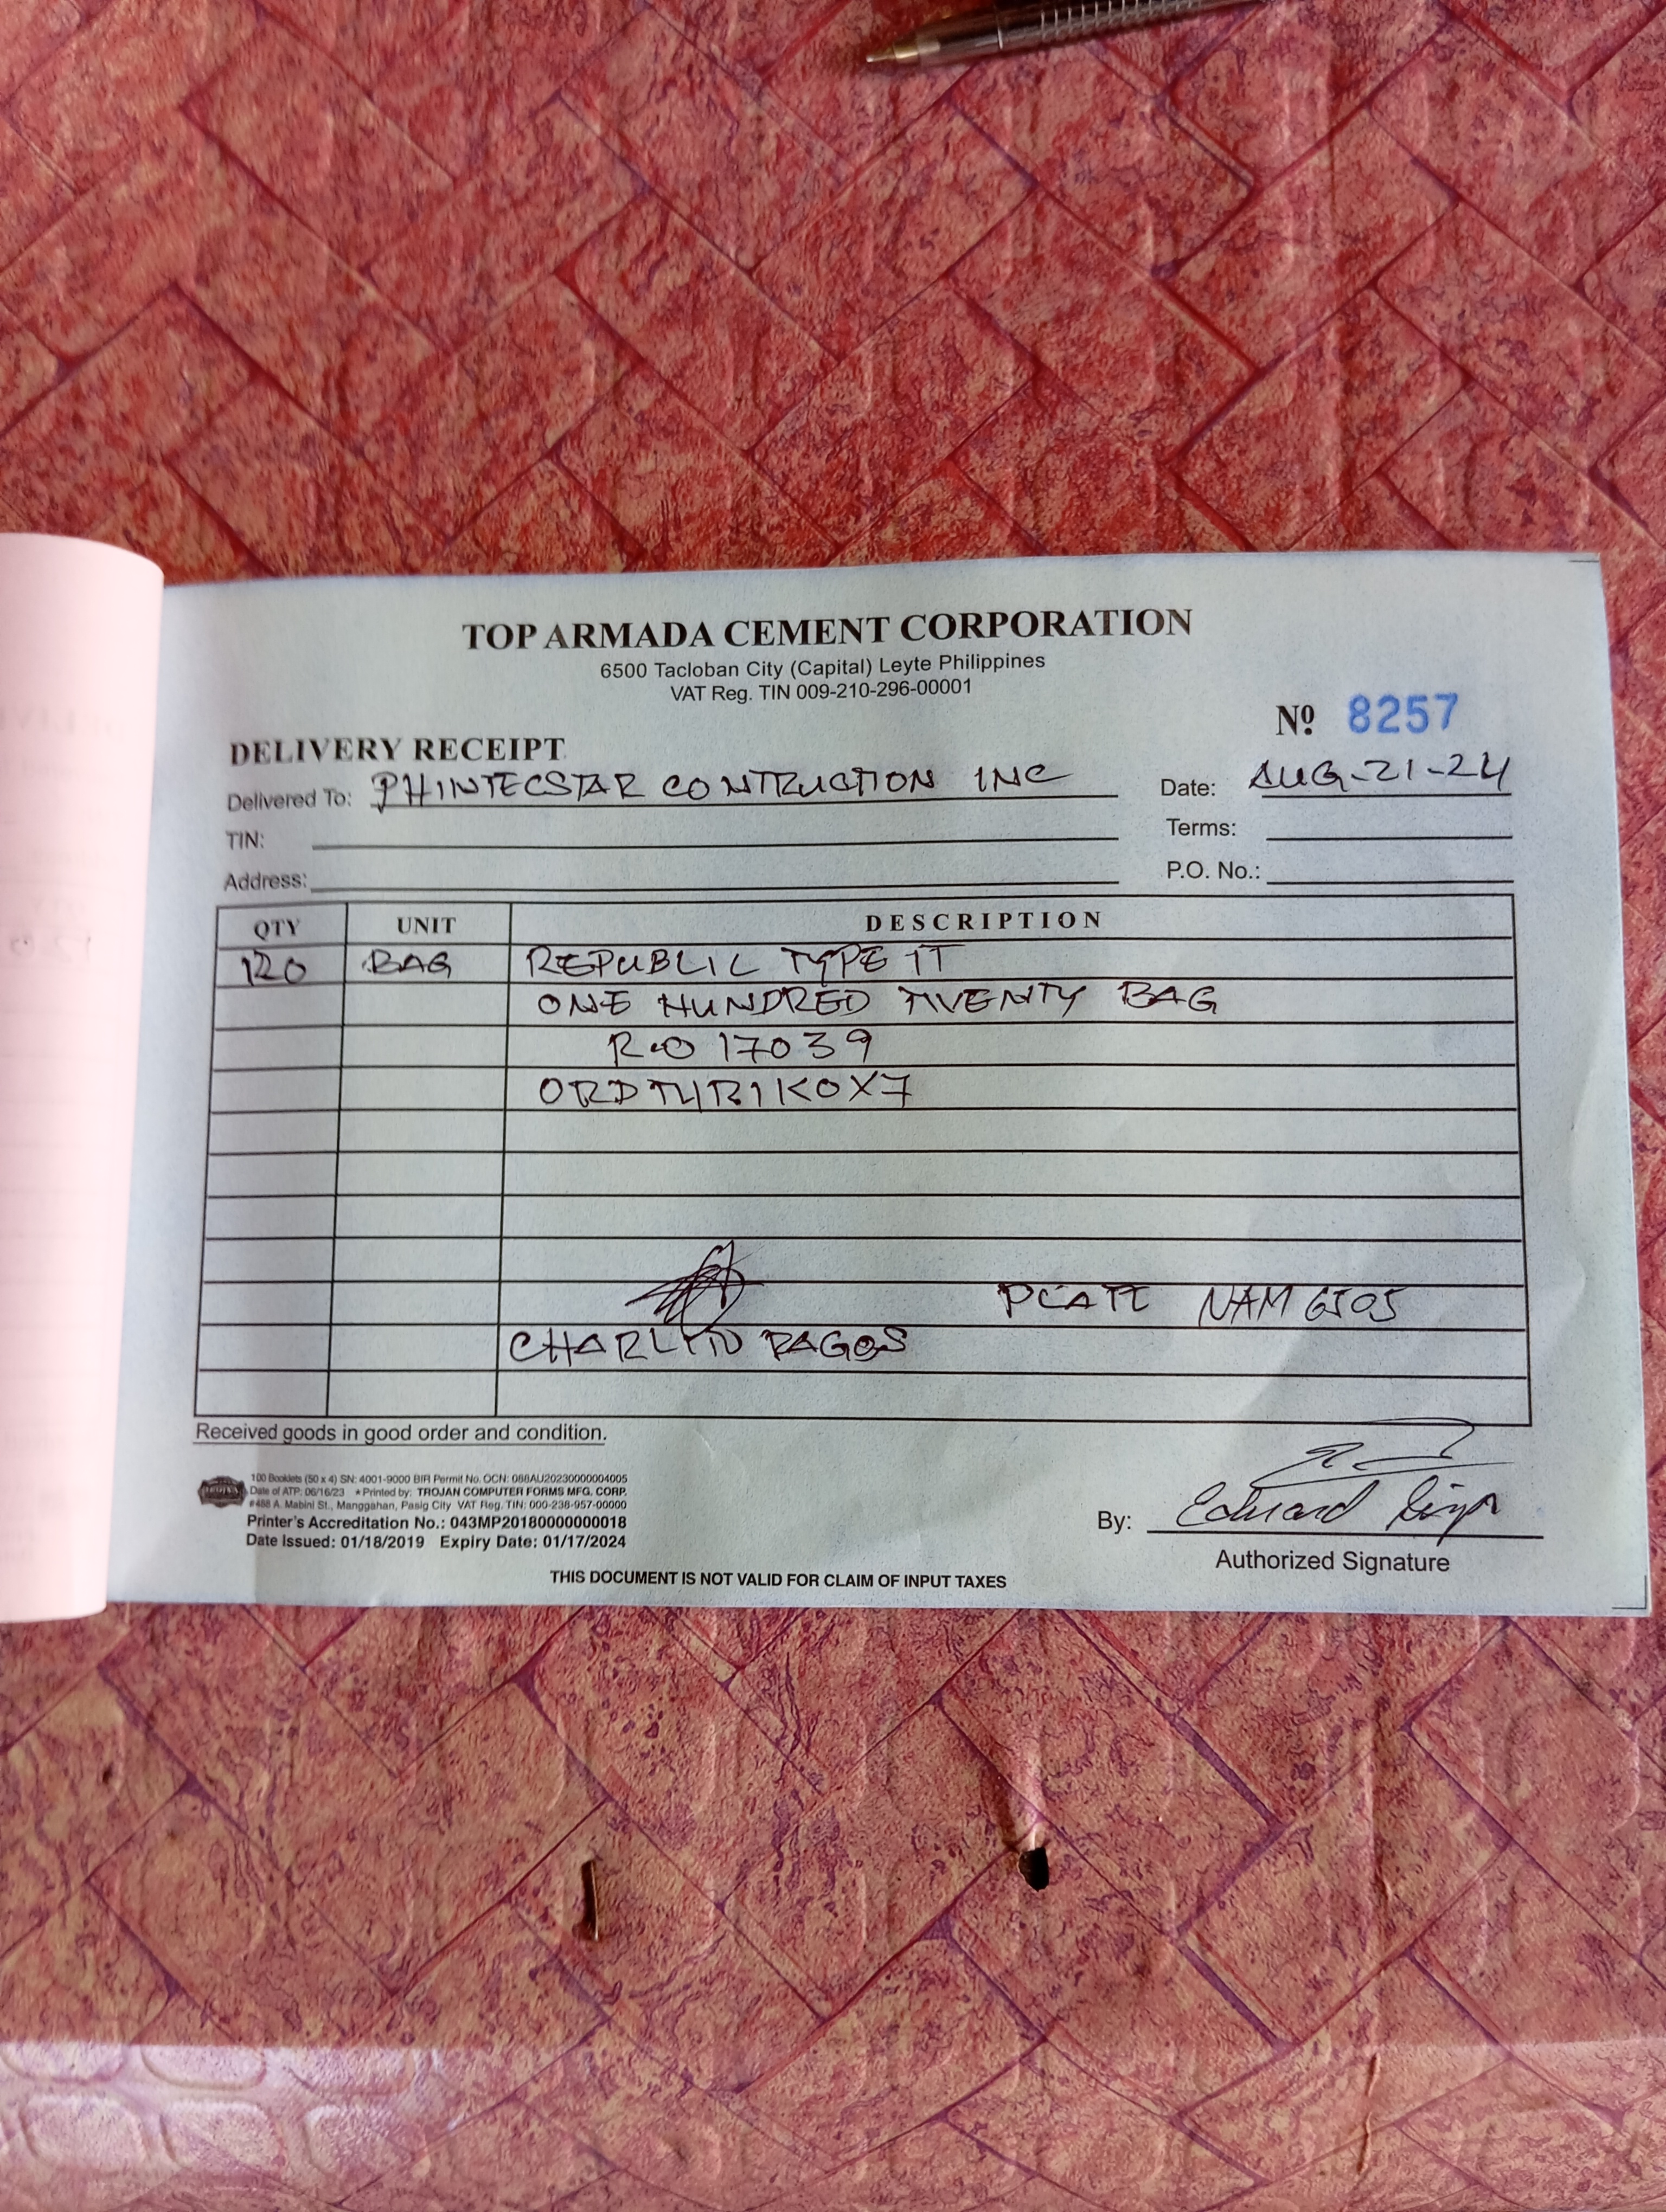 TOP ARMADA CEMENT CORPORATION
6500 Tacloban City (Capital) Leyte Philippines
VAT Reg. TIN 009-210-296-00001
Nº 8257
DELIVERY RECEIPT
Delivered To: PHINTECSTAR CONTRUCTION INC Date: AUG-21-24
TIN: Terms:
Address: P.O. No.:
QTY UNIT DESCRIPTION
120 BAG REPUBLIC TYPE 1T
ONE HUNDRED TWENTY BAG
R.O 17039
PLATE NAM 6505
CHARLITO PAGOS
Received goods in good order and condition.
100 Booklets (50 x 4) SN: 4001-9000 BIR Permit No. OCN: 088AU20230000004005
Date of ATP: 06/16/23 * Printed by: TROJAN COMPUTER FORMS MFG. CORP.
#488 A. Mabini St., Manggahan, Pasig City VAT Reg. TIN: 000-238-957-00000
Printer's Accreditation No.: 043MP20180000000018
Date Issued: 01/18/2019 Expiry Date: 01/17/2024
By: Eduard
Authorized Signature
THIS DOCUMENT IS NOT VALID FOR CLAIM OF INPUT TAXES